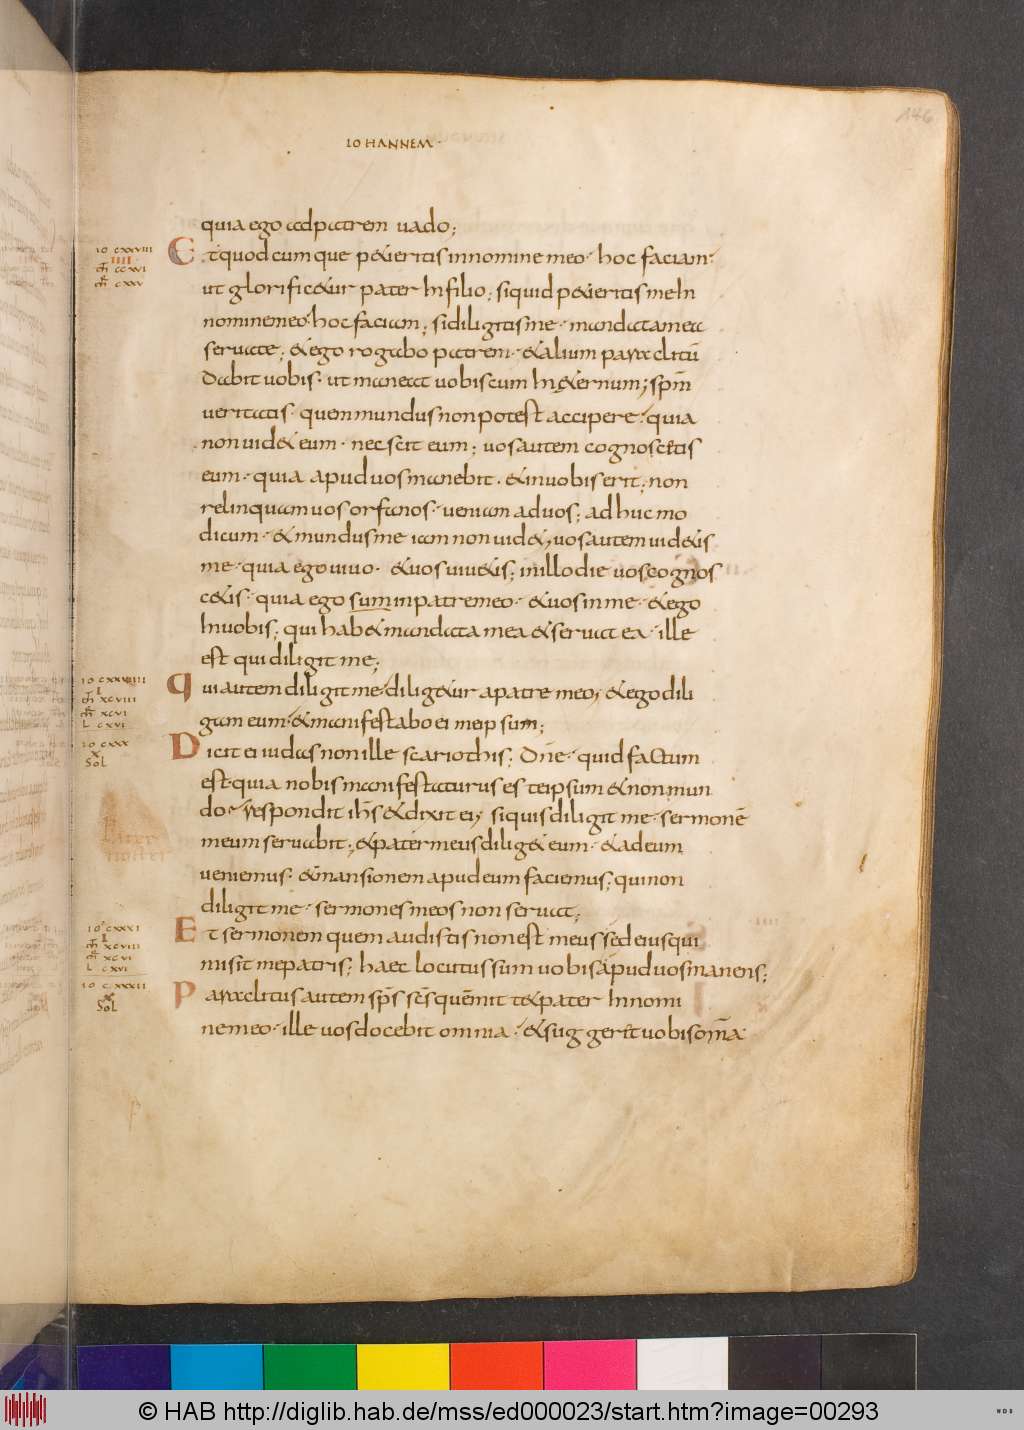 146
IOHANNEM
quia ego ad patrem uado;
Et quodcumque petieritis in nomine meo · hoc faciam ·
ut glorificetur pater in filio; si quid petieritis me in
nomine meo · hoc faciam; si diligitis me · mandata mea
seruate; & ego rogabo patrem · & alium paraclitū
dabit uobis · ut maneat uobiscum in &ernum; spm̄
ueritatis · quem mundus non potest accipere · quia
non uid& eum · nec scit eum; uos autem cognoscetis
eum · quia apud uos manebit · & in uobis erit; non
relinquam uos orfanos · ueniam ad uos; adhuc mo
dicum · & mundus me iam non uid&; uos autem uid&is
me · quia ego uiuo · & uos uiu&is; in illo die uos cognos
c&is · quia ego sum in patre meo · & uos in me · & ego
in uobis; qui hab& mandata mea & seruat ea · ille
est qui diligit me;
qui autem diligit me · dilig&ur a patre meo; & ego dili
gam eum · & manifestabo ei meipsum;
Dicit ei iudas non ille scariothis; dn̄e · quid factum
est · quia nobis manifestaturus es teipsum & non mun
do · respondit ih̄s & dixit ei; si quis diligit me · sermonē
meum seruabit; & pater meus dilig& eum · & ad eum
ueniemus · & mansionem apud eum faciemus; qui non
diligit me · sermones meos non seruat;
Et sermonem quem audistis non est meus sed eius qui
misit me patris; haec locutus sum uobis apud uos manens;
Paraclitus autem sp̄s sc̄s quem mit t& pater in nomi
ne meo · ille uos docebit omnia · & suggeret uobis om̄a
io cxxviii
iiii
m̄ ccxvi
m̄r cxxv
io cxxviiii
i
m̄ xcviii
m̄r xcvi
L cxvi
io cxxx
x
Sol
io cxxxi
i
m̄ xcviii
m̄r xcvi
L cxvi
io cxxxii
x
Sol
© HAB http://diglib.hab.de/mss/ed000023/start.htm?image=00293
WDB